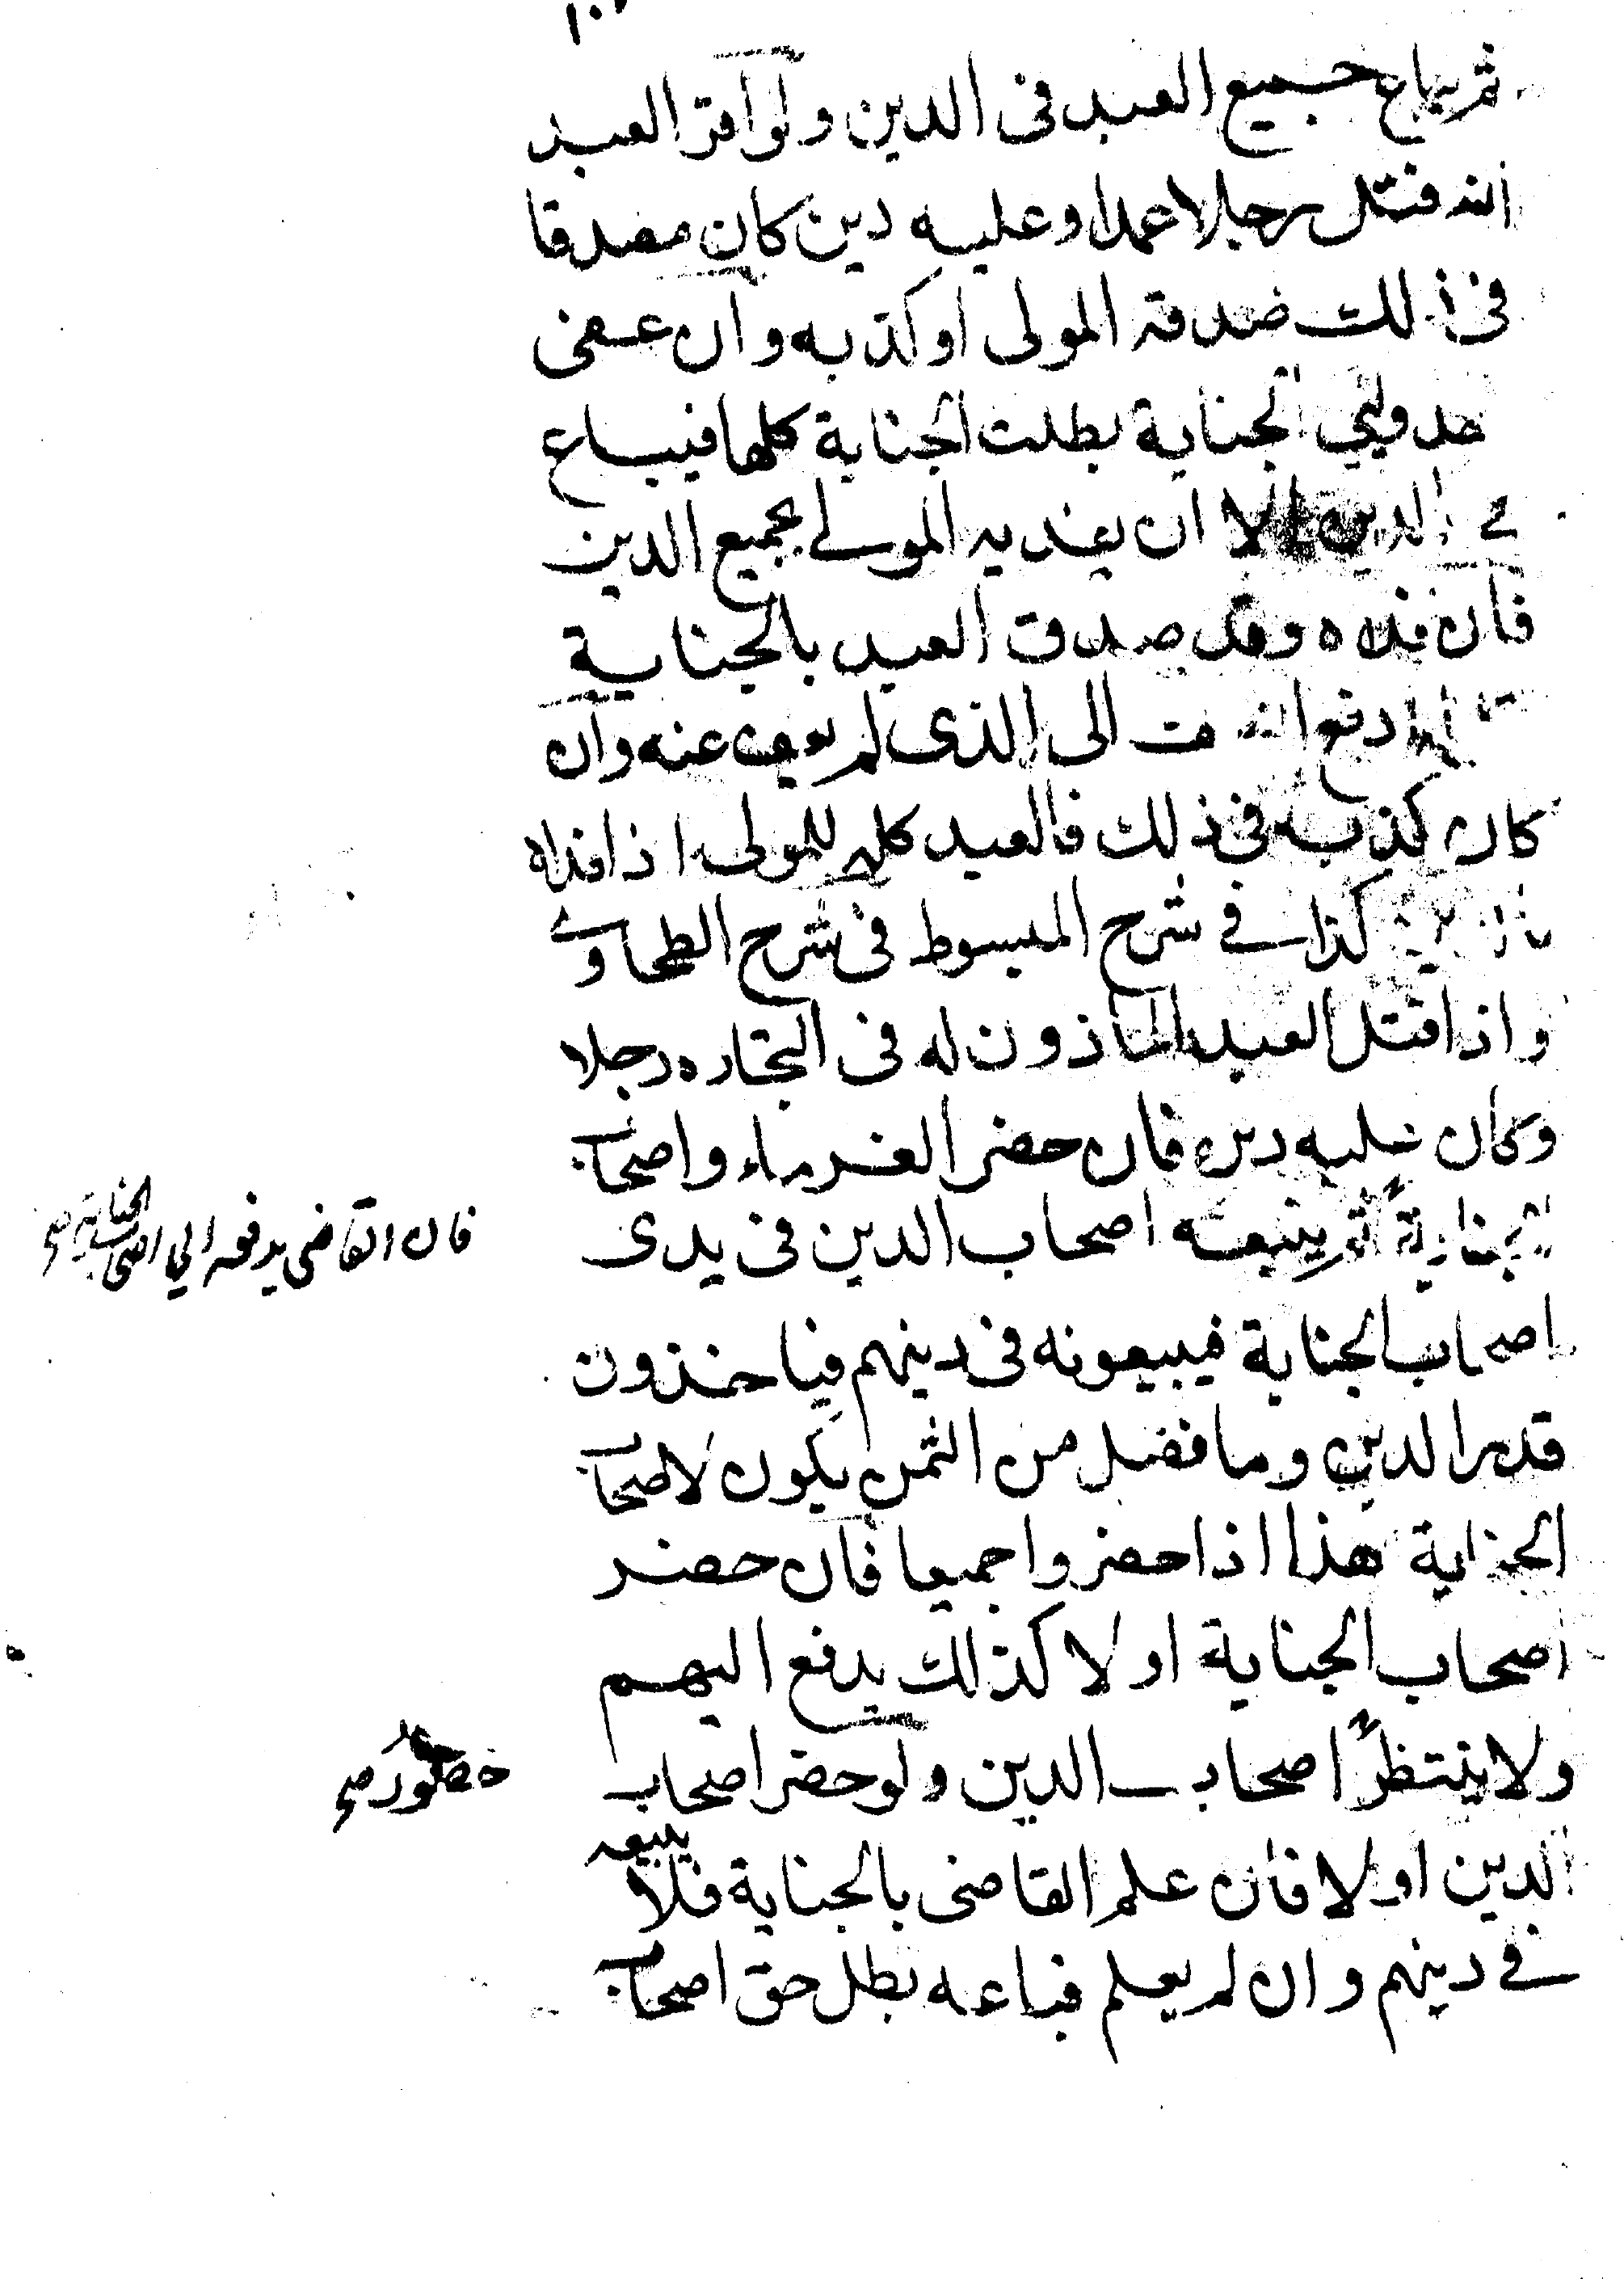 ثم يباع جميع العبد فى الدين ولو اقر العبد
انه قتل رجلا عمدا وعليه دين كان مصدقا
فى ذلك صدقه المولى او كذبه وان عفى
احد وليي الجناية بطلت الجناية كلها فيباع
في الدين الا ان يفديه المولى بجميع الدين
فان فداه وقد صدق العبد بالجناية
ادفع الى الذى لم يعف عنه وان
كان كذبه فى ذلك فالعبد كله للمولى اذا فداه
كذا في شرح المبسوط فى شرح الطحاوي
واذا قتل العبد الماذون له فى التجاره رجلا
وكان عليه دين فان حضر الغرماء واصحاب
الجناية فان القاضى يدفعه الي اصحاب الجناية صح
ثم يتبعه اصحاب الدين فى يدى
اصحاب الجناية فيبيعونه فى دينهم فياخذون
قدر الدين وما فضل من الثمن يكون لاصحاب
الجناية هذا اذا حضروا جميعا فان حضر
اصحاب الجناية اولا كذلك يدفع اليهم
ولا ينتظر اصحاب الدين ولو حضر اصحاب
حضور صح
الدين اولا فان علم القاضى بالجناية فلا يبيعه
في دينهم وان لم يعلم فباعه بطل حق اصحاب